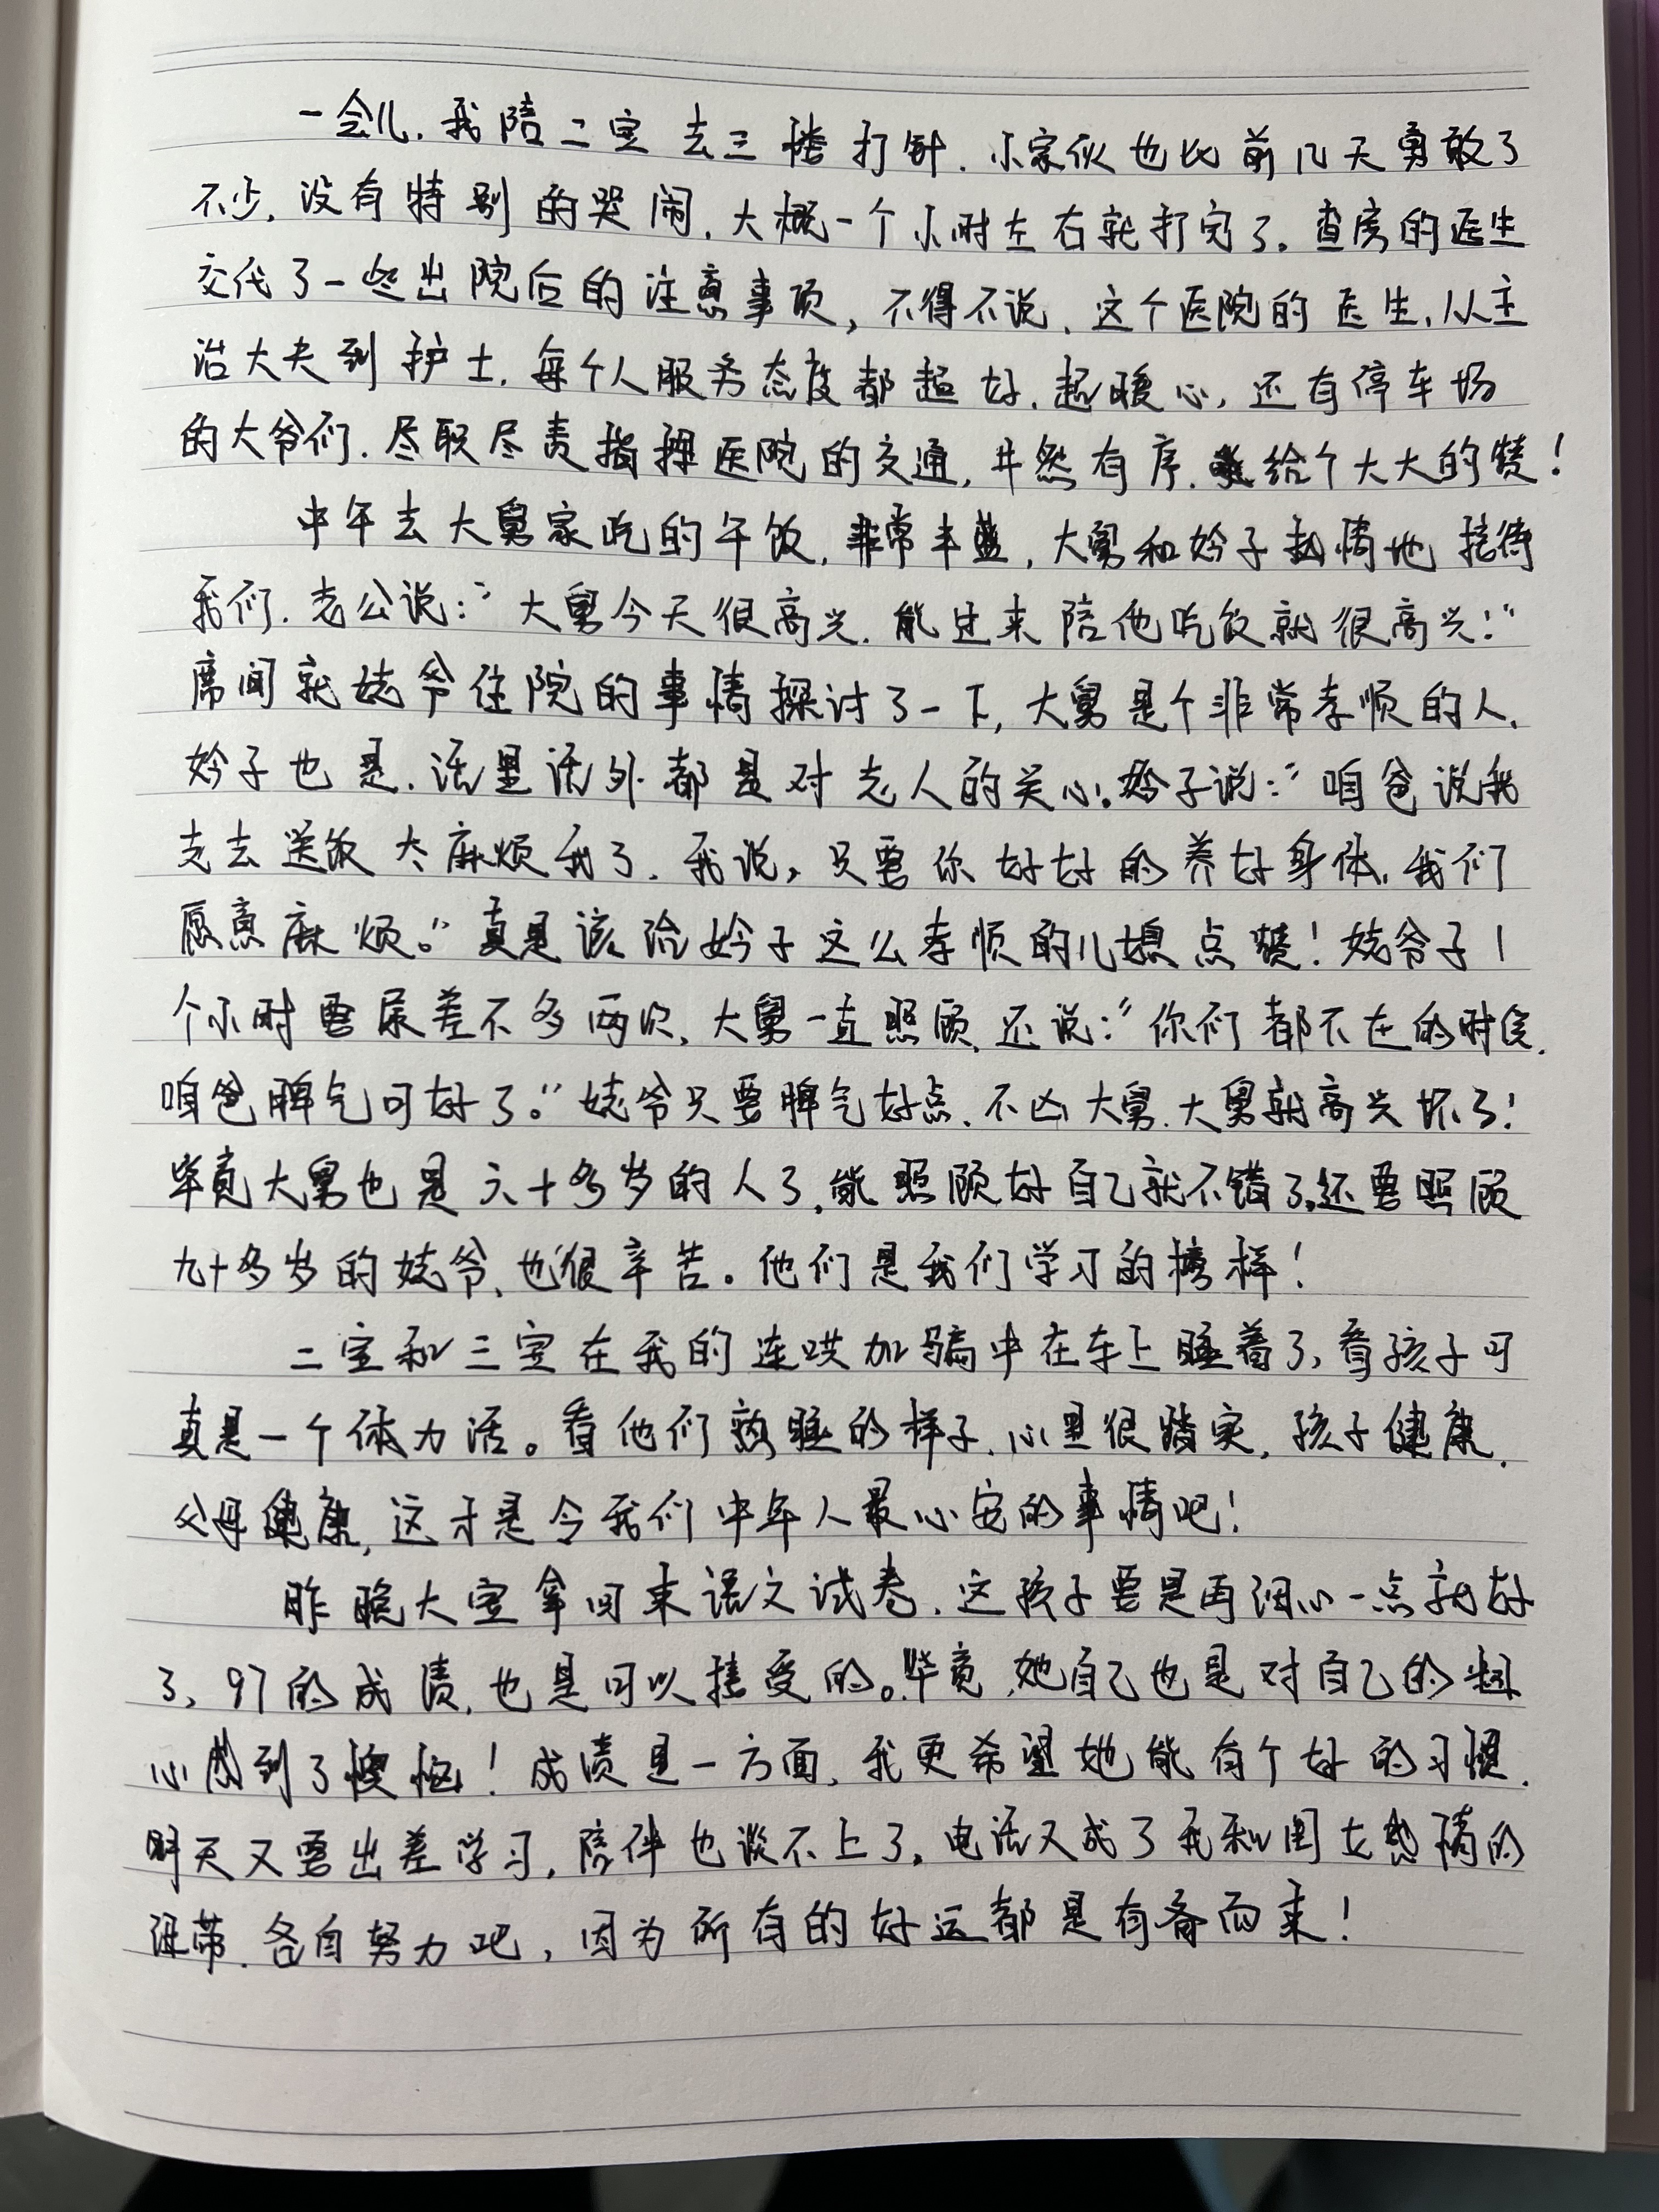 一会儿，我陪二宝去三楼打针，小家伙也比前几天勇敢了
不少，没有特别的哭闹，大概一个小时左右就打完了。查房的医生
交代了一些出院后的注意事项，不得不说，这个医院的医生，从主
治大夫到护士，每个人服务态度都超好，超暖心，还有停车场
的大爷们，尽职尽责指挥医院的交通，井然有序，给个大大的赞！
中午去大舅家吃的午饭，非常丰盛，大舅和妗子热情地招待
我们，老公说：“大舅今天很高兴，能过来陪他吃饭就很高兴！”
席间就姥爷住院的事情探讨了一下，大舅是个非常孝顺的人，
妗子也是，话里话外都是对老人的关心。妗子说：“咱爸说我
走去送饭太麻烦我了，我说，只要你好好的养好身体，我们
愿意麻烦。”真是该给妗子这么孝顺的儿媳点赞！姥爷子1
个小时要尿差不多两次，大舅一直照顾，还说：“你们都不在的时候，
咱爸脾气可好了。”姥爷只要脾气好点，不凶大舅，大舅就高兴坏了！
毕竟大舅也是六十多岁的人了，能照顾好自己就不错了，还要照顾
九十多岁的姥爷，也很辛苦。他们是我们学习的榜样！
二宝和三宝在我的连哄加骗中在车上睡着了，看孩子可
真是一个体力活。看他们熟睡的样子，心里很踏实，孩子健康，
父母健康，这才是令我们中年人最心安的事情吧！
昨晚大宝拿回来语文试卷，这孩子要是再细心一点就好
了，97的成绩，也是可以接受的。毕竟，她自己也是对自己的粗
心感到了懊恼！成绩是一方面，我更希望她能有个好的习惯，
明天又要出差学习，陪伴也谈不上了，电话又成了我和闺女感情的
纽带，各自努力吧，因为所有的好运都是有备而来！